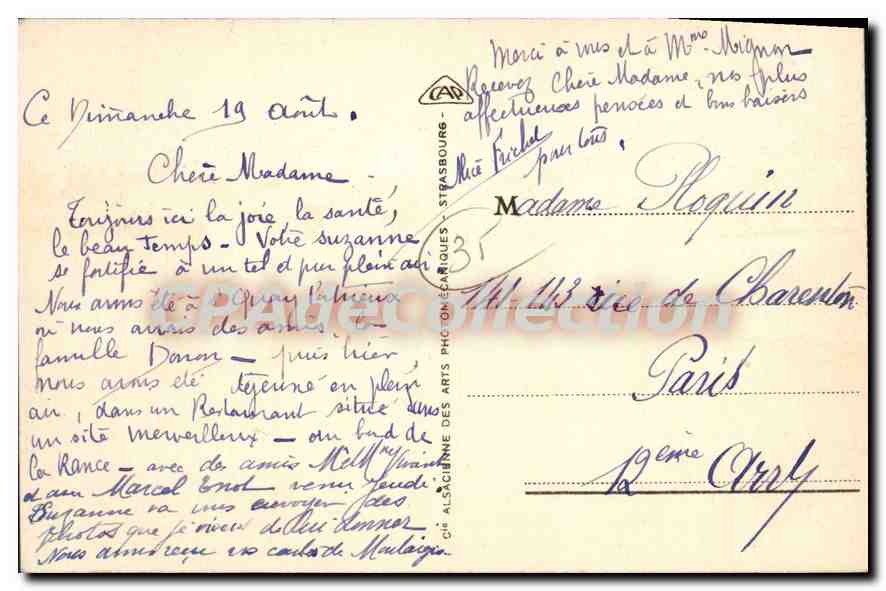 Ce Dimanche 19 Août.
Chère Madame -
Toujours ici la joie, la santé,
le beau temps - Votre Suzanne
se fortifie à un tel et pur plein air.
Nous avons été à St Quay
où nous avons des amis la
famille Donon - puis hier,
nous avons été déjeuner en plein
air, dans un Restaurant situé dans
un site merveilleux - au bord de
la Rance - avec des amis
et Marcel venir Jeudi.
Suzanne va vous envoyer des
photos que je viens de lui donner
Nous
Merci à vous et à Mme Mignon
Recevez Chère Madame, nos plus
affectueuses pensées et bons baisers
pour tous.
Alice
CAP
Cie ALSACIENNE DES ARTS PHOTOMÉCANIQUES - STRASBOURG -
35
Madame Ploquin
141-143 rue de Charenton
Paris
12ème Arrt
CPAdeCollection